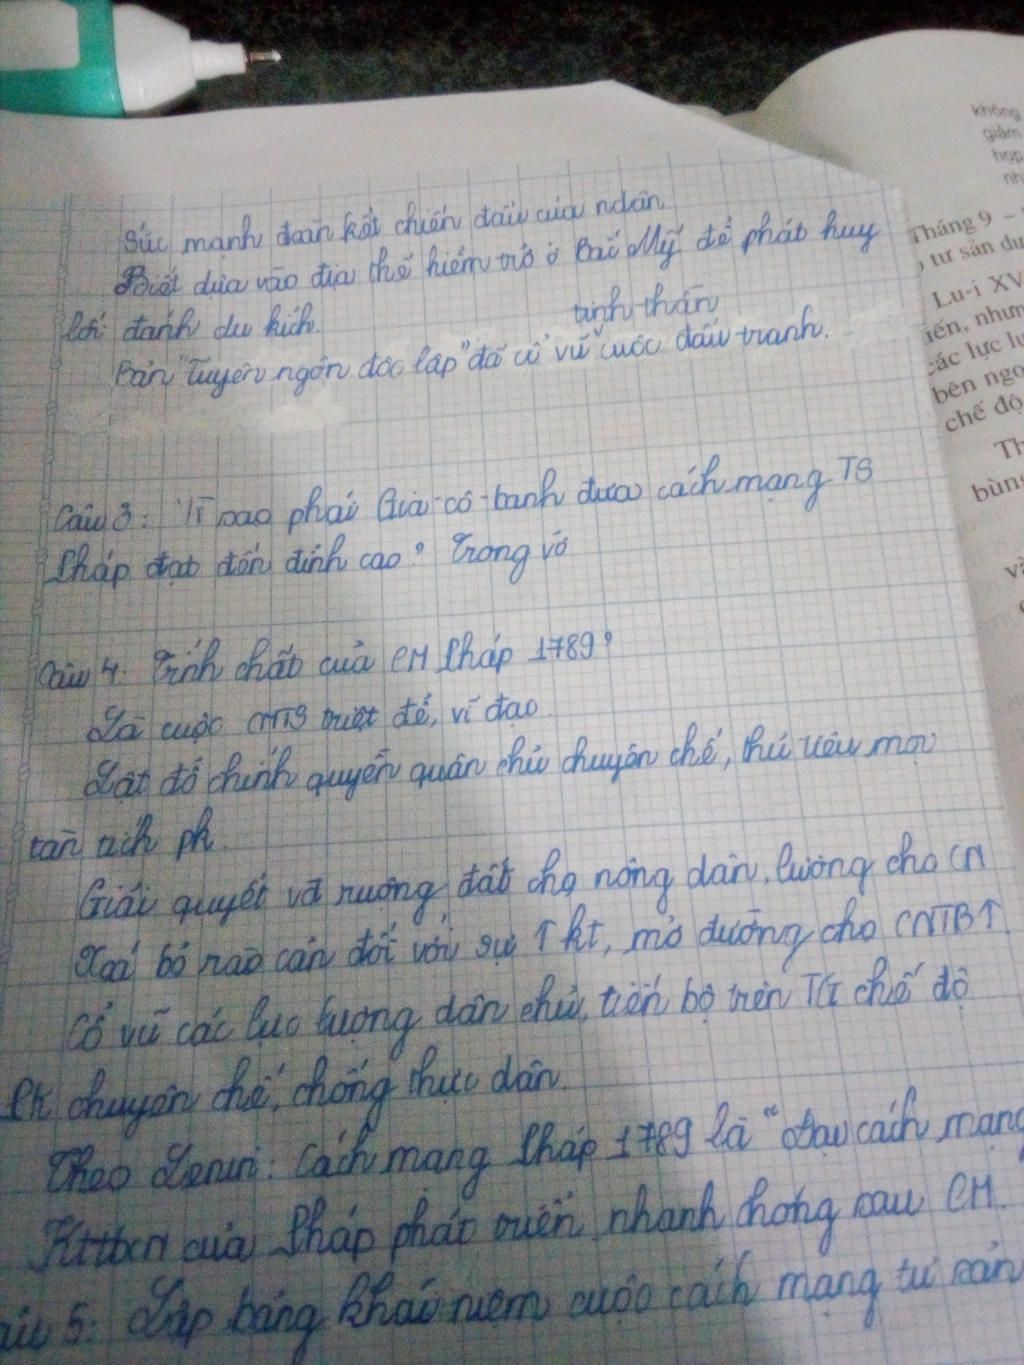 Sức mạnh đoàn kết chiến đấu của ndân.
Biết dựa vào địa thế hiểm trở ở Bắc Mỹ để phát huy
lối đánh du kích.
tinh thần
Bản "Tuyên ngôn độc lập" đã cổ vũ cuộc đấu tranh.
Câu 3: Vì sao phái Gia-cô-banh đưa cách mạng TS
Pháp đạt đến đỉnh cao? Trong vở
Câu 4: Tính chất của CM Pháp 1789?
Là cuộc CMTS triệt để, vĩ đạo
Lật đổ chính quyền quân chủ chuyên chế, thủ tiêu mọi
tàn tích pk.
Giải quyết vđ ruộng đất cho nông dân, lương cho CN
Xoá bỏ rào cản đối với sự ↑ kt, mở đường cho CNTB↑.
Cổ vũ các lực lượng dân chủ, tiến bộ trên TG chế độ
PK chuyên chế, chống thực dân.
Theo Lenin: Cách mạng Pháp 1789 là "Đại cách mạng
của Pháp phát triển nhanh chóng sau CM.
5: Lập bảng khái niệm cuộc cách mạng tư sản
không
giảm
hợp
Tháng 9 –
tư sản
Lu-i XV
nhưn
các lực lư
bên ngo
chế độ
Th
bùng